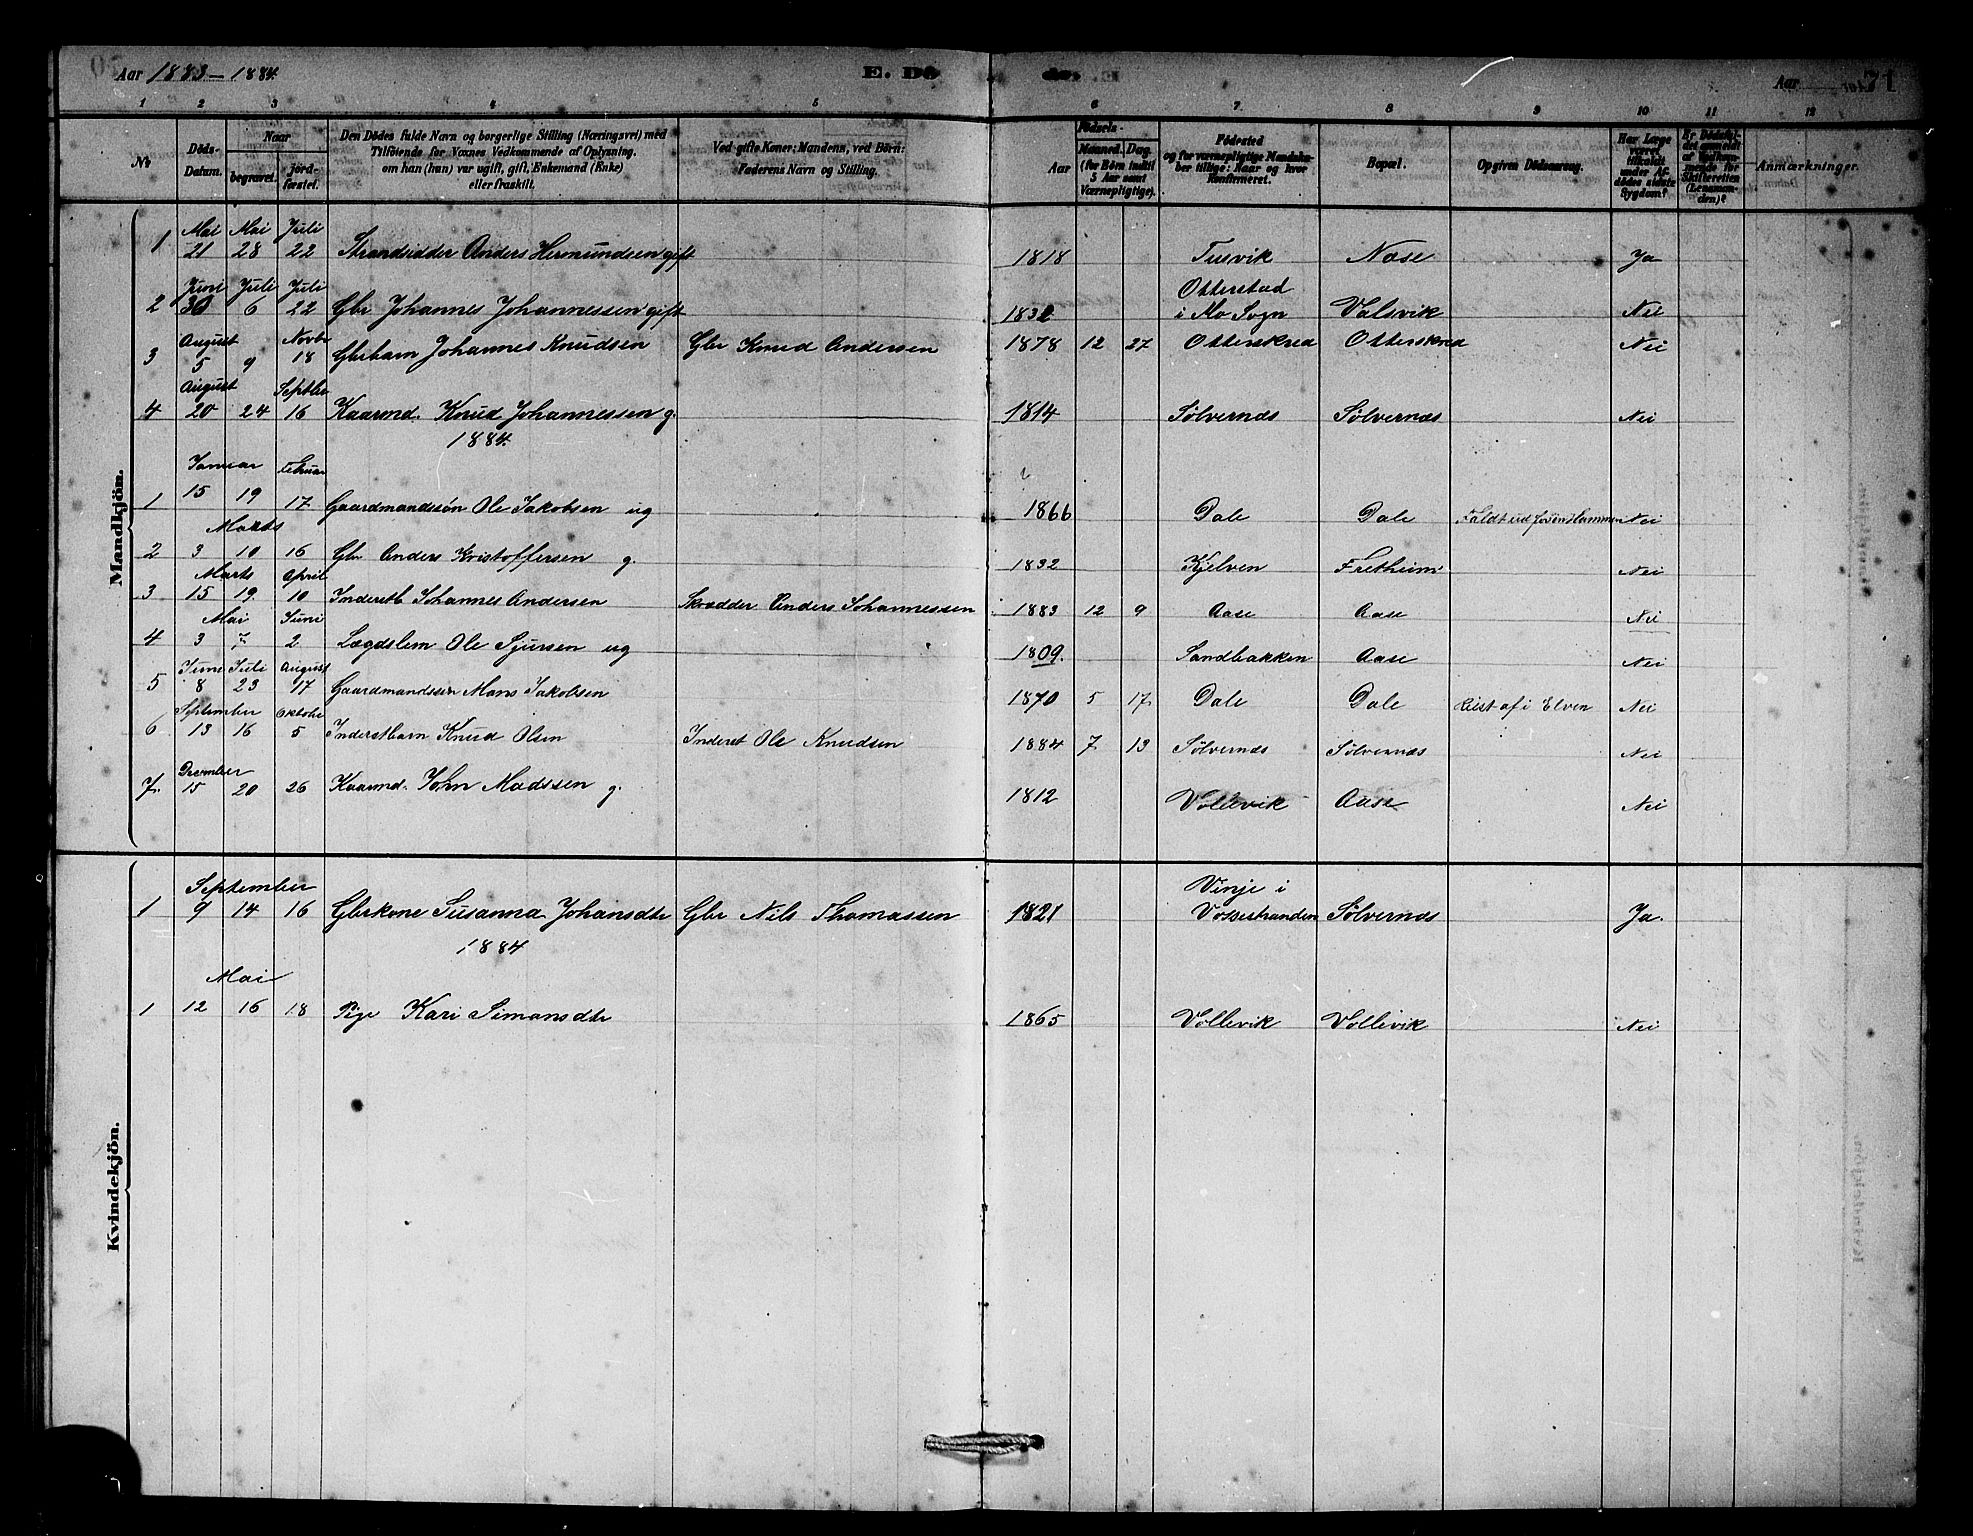 Aar 1883-1884. E. Dö
Aar 71
1 2 3 4 5 6 7 8 9 10 11 12
No
Döds-Datum.
Naar begravet. jord-fæstet.
Den Dödes fulde Navn og borgerlige Stilling (Næringsvei) med Tilföiende for Voxnes Vedkommende af Oplysning, om han (hun) var ugift, gift, Enkemand (Enke) eller fraskilt.
Ved gifte Koner: Mandens, ved Börn: Faderens Navn og Stilling.
Födsels-
Aar
Maaned. Dag. (for Börn indtil 5 Aar samt Værnepligtige).
Födested og for værnepligtige Mandskaber tillige: Naar og hvor Konfirmeret.
Bopæl.
Opgiven Dödsaarsag.
Har Læge været tilkaldt under Afdödes sidste Sygdom?
Er Dödsfaldet anmeldt af Vedkommende for Skifteretten (Lensmanden)?
Anmærkninger.
Mandkjön.
Mai Mai Juli
1 21 28 22 Strandsidder Anders Hermundsen gift 1818 Tusvik Næse Ja
Juni Juli Juli Otterstad
2 30 6 22 Gbr Johannes Johannessen gift i Mo Sogn Valsvik Nei
August Novbr
3 5 9 18 Gbrbarn Johannes Knudsen Gbr Knud Andersen 1878 12 27 Otterskred Otterskred Nei
August Septbr
4 20 24 16 Kaarmd. Knud Johannessen g. 1814 Sølvernæs Sølvernæs Nei
1884.
Januar Februar
1 15 19 17 Gaardmandssøn Ole Jakobsen ug 1866 Dale Dale Faldt ud for Nei
Marts
2 3 10 16 Gbr Anders Kristoffersen g. 1832 Kjelven Fretheim Nei
Marts April
3 15 19 10 Inderstb Johannes Andersen Skrædder Anders Johannessen 1883 12 9 Aase Aase Nei
Mai Juni
4 3 7 2 Lægdslem Ole Sjursen ug 1809. Sandbakken Aase Nei
Juni Juli August
5 8 23 17 Gaardmandssøn Mons Jakobsen 1870 5 17 Dale Dale af i Elven Nei
September Oktober
6 13 16 5 Inderstbarn Knud Olsen Inderst Ole Knudsen 1884 7 13 Sølvernæs Sølvernæs Nei
December
7. 15 20 26 Kaarmd. John Madssen g. 1812 Vollevik Aase Nei
Kvindekjön.
September Vinje i
1 9 14 16 Gbrkone Susanna Johansdtr Gbr Nils Thomassen 1821 Vossestranden Sølvernæs Ja.
1884
Mai
1 12 16 18 Pige Kari Simonsdtr 1865 Vollevik Vollevik Nei